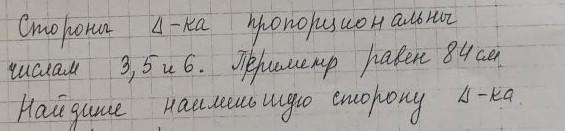 Стороны Δ-ка пропорциональны
числам 3, 5 и 6. Периметр равен 84 см
Найдите наименьшую сторону Δ-ка.